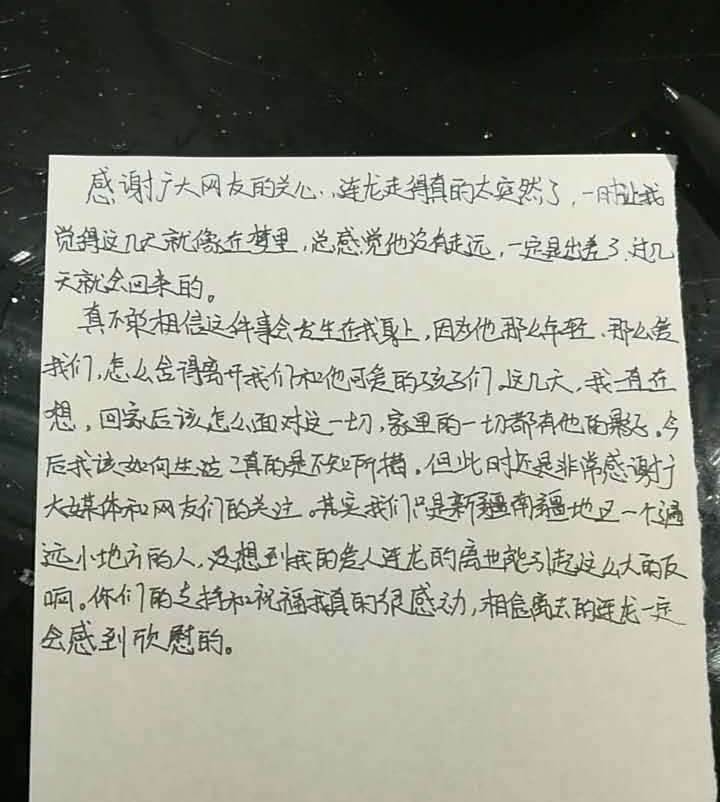 感谢广大网友的关心，连龙走得真的太突然了，一时让我
觉得这几天就像在梦里，总感觉他没有走远，一定是出差了，过几
天就会回来的。
真不敢相信这件事会发生在我身上，因为他那么年轻、那么爱
我们，怎么舍得离开我们和他可爱的孩子们。这几天，我一直在
想，回家后该怎么面对这一切，家里的一切都有他的影子。今
后我该如何生活？真的是不知所措。但此时还是非常感谢广
大媒体和网友们的关注。其实我们只是新疆南疆地区一个遥
远小地方的人，没想到我的爱人连龙的离世能引起这么大的反
响。你们的支持和祝福我真的很感动，相信离去的连龙一定
会感到欣慰的。